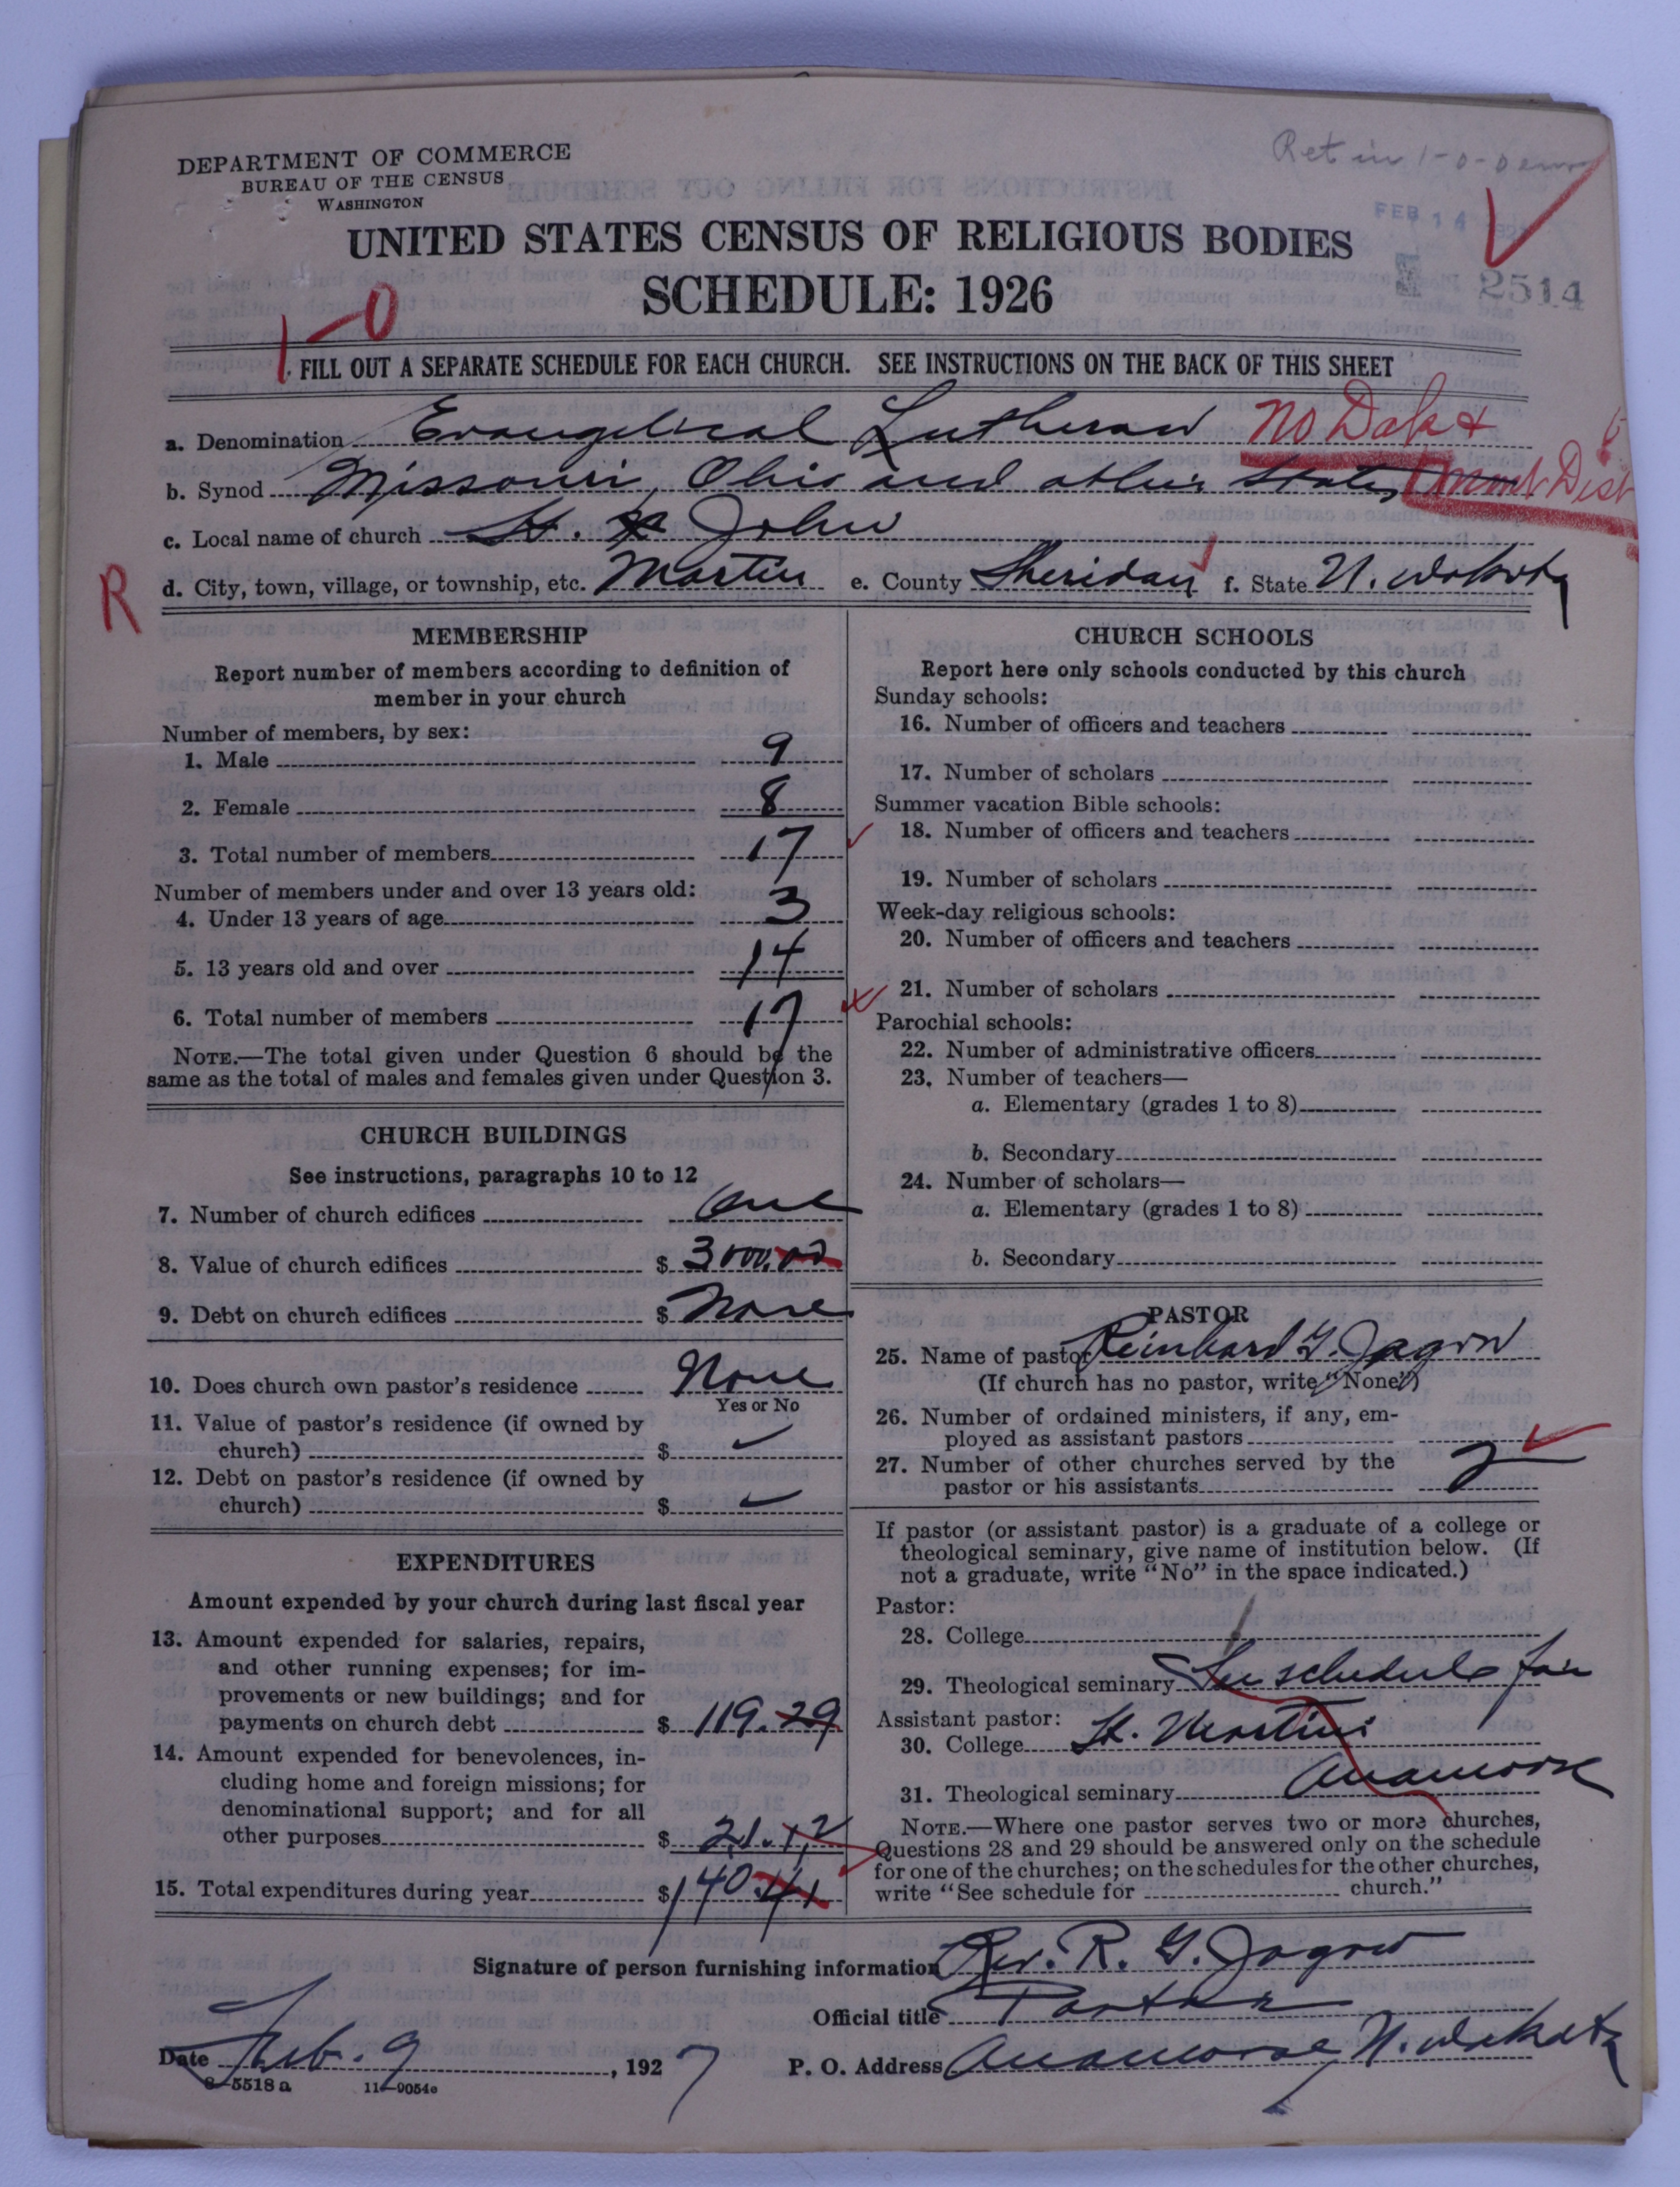 Ret in 1-0-0
DEPARTMENT OF COMMERCE
BUREAU OF THE CENSUS
WASHINGTON
FEB 14
UNITED STATES CENSUS OF RELIGIOUS BODIES
SCHEDULE: 1926
2514
1-0
FILL OUT A SEPARATE SCHEDULE FOR EACH CHURCH. SEE INSTRUCTIONS ON THE BACK OF THIS SHEET
a. Denomination Evangelical Lutheran No Dak &
b. Synod Missouri, Ohio and other States Mont Dist
c. Local name of church St. John
R
d. City, town, village, or township, etc. Martin e. County Sheridan f. State N. Dakota
MEMBERSHIP
Report number of members according to definition of
member in your church
Number of members, by sex:
1. Male 9
2. Female 8
3. Total number of members 17
Number of members under and over 13 years old:
4. Under 13 years of age 3
5. 13 years old and over 14
6. Total number of members 17
NOTE.—The total given under Question 6 should be the
same as the total of males and females given under Question 3.
CHURCH BUILDINGS
See instructions, paragraphs 10 to 12
7. Number of church edifices one
8. Value of church edifices $ 3000.00
9. Debt on church edifices $ None
10. Does church own pastor's residence None
Yes or No
11. Value of pastor's residence (if owned by
church) $
12. Debt on pastor's residence (if owned by
church) $
EXPENDITURES
Amount expended by your church during last fiscal year
13. Amount expended for salaries, repairs,
and other running expenses; for im-
provements or new buildings; and for
payments on church debt $ 119.29
14. Amount expended for benevolences, in-
cluding home and foreign missions; for
denominational support; and for all
other purposes $ 21.12
15. Total expenditures during year $ 140.41
CHURCH SCHOOLS
Report here only schools conducted by this church
Sunday schools:
16. Number of officers and teachers
17. Number of scholars
Summer vacation Bible schools:
18. Number of officers and teachers
19. Number of scholars
Week-day religious schools:
20. Number of officers and teachers
21. Number of scholars
Parochial schools:
22. Number of administrative officers
23. Number of teachers—
a. Elementary (grades 1 to 8)
b. Secondary
24. Number of scholars—
a. Elementary (grades 1 to 8)
b. Secondary
PASTOR
25. Name of pastor Reinhard G. Jagow
(If church has no pastor, write "None")
26. Number of ordained ministers, if any, em-
ployed as assistant pastors
27. Number of other churches served by the
pastor or his assistants 2
If pastor (or assistant pastor) is a graduate of a college or
theological seminary, give name of institution below. (If
not a graduate, write "No" in the space indicated.)
Pastor:
28. College
29. Theological seminary See schedule for
Assistant pastor:
30. College St. Martini
31. Theological seminary Anamoose
NOTE.—Where one pastor serves two or more churches,
Questions 28 and 29 should be answered only on the schedule
for one of the churches; on the schedules for the other churches,
write "See schedule for church."
Signature of person furnishing information Rev. R. G. Jagow
Official title Pastor
Date Feb. 9, 1927 P. O. Address Anamoose, N. Dakota
8-5518a 11-9054c